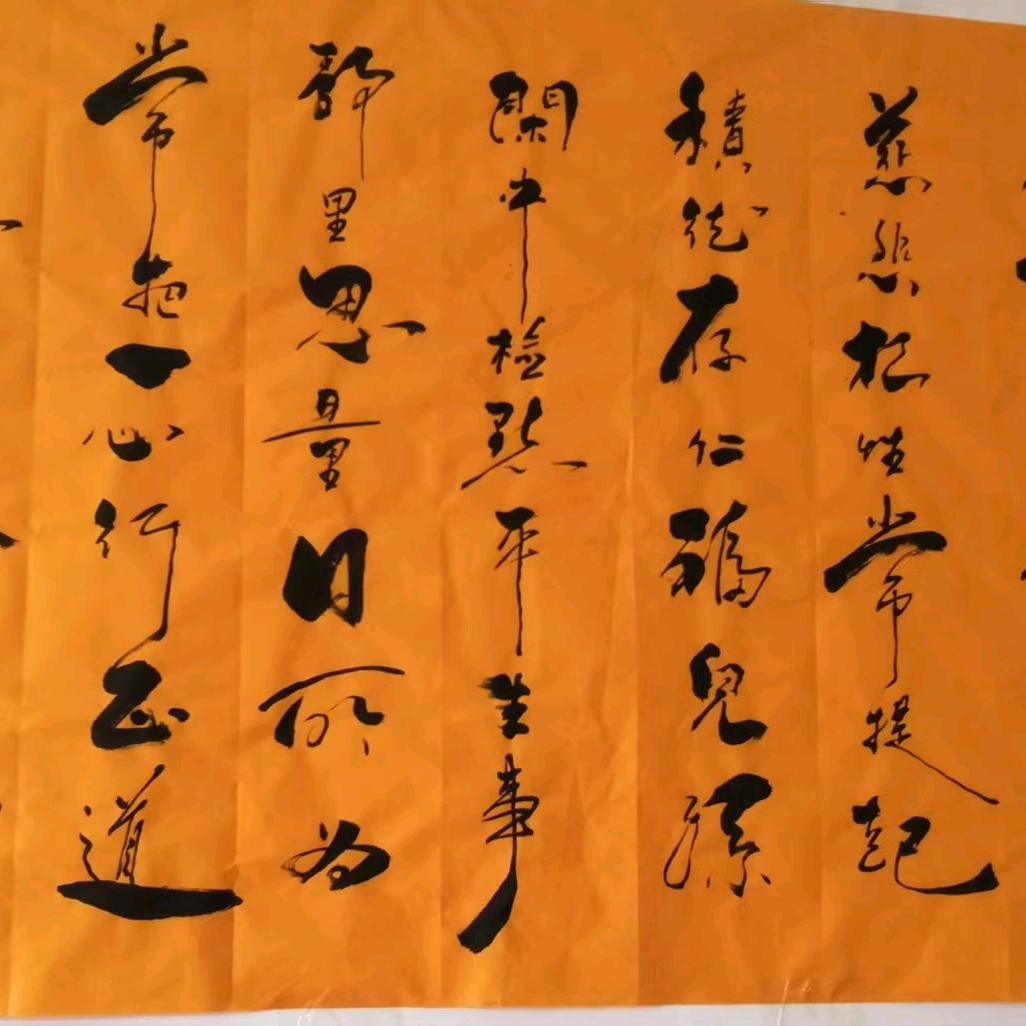 慈悲根性常提起
積德存仁福兒孫
閑中檢點平生事
靜里思量日所為
常抱一心行正道